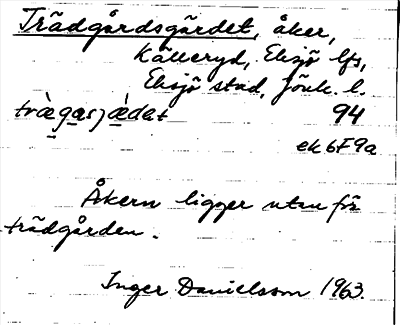 Trädgårdsgärdet, åker,
Källeryd, Eksjö lfs,
Eksjö stad, Jönk. l.
trä̀gasjä́dat 94
ek 6F9a
Åkern ligger utanför
trädgården.
Inger Danielsson 1963.